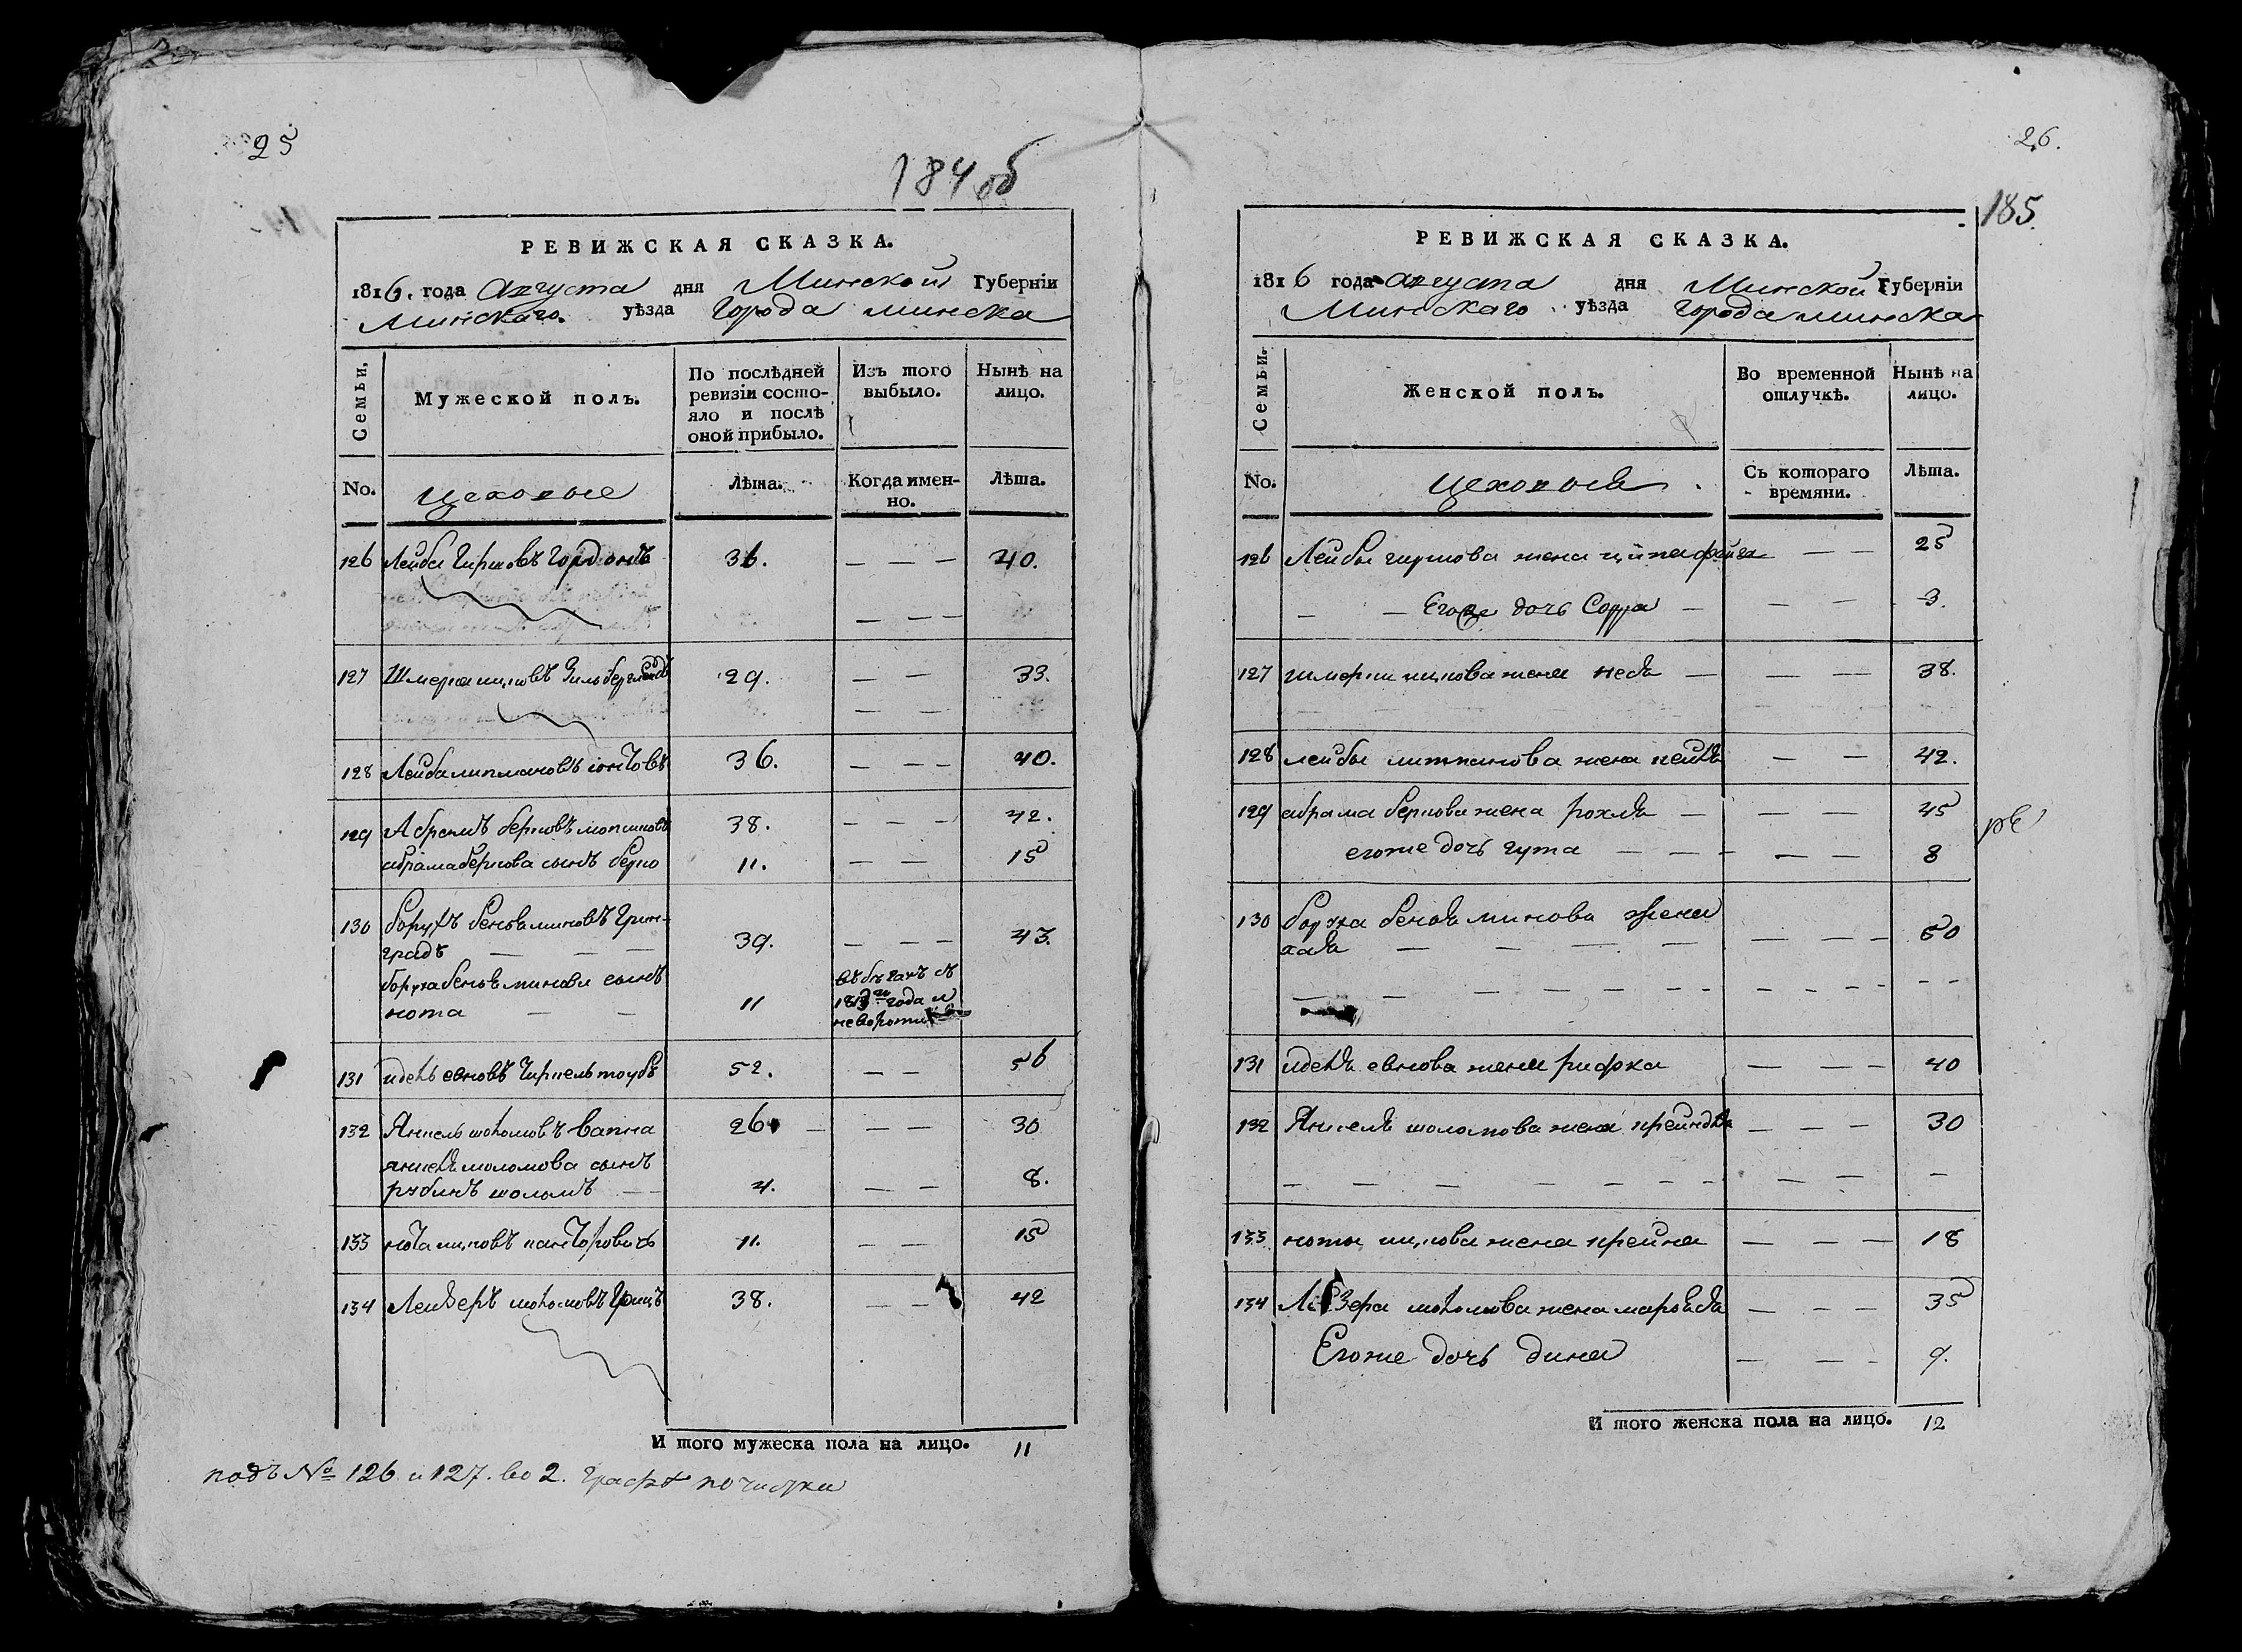 25
184 об
РЕВИЖСКАЯ СКАЗКА.
1816. года Августа дня Минской Губерніи
Минскаго. уѣзда Города Минска
Семьи,
Мужеской полъ.
По послѣдней ревизіи состояло и послѣ оной прибыло.
Изъ того выбыло.
Нынѣ на лицо.
No. цеховые Лѣта. Когда именно. Лѣта.
126 Лейба Гиршовъ Гордонъ 36. — — — 40.
127 Шмерка ицковъ Зильбер 29. — — 33.
128 Лейба липмановъ 36. — — — 40.
129 Абрамъ берковъ 38. — — — 42.
абрама беркова сынъ берко 11. — — 15
130 борухъ беньяминовъ Гринградъ — — 39. — — — 43.
боруха беньяминова сынъ нота — — 11 въ бегахъ съ 1813го года и
131 идель евновъ 52. — — 56
132 Янкель шоломовъ вапна 26 — — — 30
янкеля шоломова сынъ рубинъ шоломъ — 4. — — 8.
133 нота ицковъ канторовичъ 11. — — 15
134 Лейзеръ шоломовъ 38. — — 42
И того мужеска пола на лицо. 11
подъ № 126 и 127. во 2. графѣ почистки
26.
185.
РЕВИЖСКАЯ СКАЗКА.
1816 года Августа дня Минской Губерніи
Минскаго уѣзда Города Минска
Семьи.
Женской полъ.
Во временной отлучкѣ.
Нынѣ на лицо.
No. цеховыя. Съ котораго времяни. Лѣта.
126 Лейбы гиршова жена ципа фейга — — 25
— — Егоже дочь Сорра — — — 3.
127 шмерки ицкова жена неся — — — 38.
128 лейбы липманова жена — — 42.
129 абрама беркова жена рохля — — — 45
егоже дочь гута — — — — — 8
130 боруха беньяминова жена хая — — — — — — — 50
131 иделя евнова жена рифка — — — 40
132 Янкеля шоломова жена прейндля — — — 30
133 ноты ицкова жена прейна — — — 18
134 Лейзера шоломова жена — — — 35
Егоже дочь дина — — — 9.
И того женска пола на лицо. 12